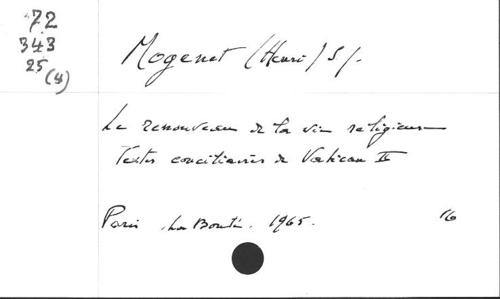 72
343
25
(4)
Mogenet (Henri) S/.
Le renouveau de la vie religieuse
Textes conciliaires de Vatican II
Paris, La Bonté. 1965. 16